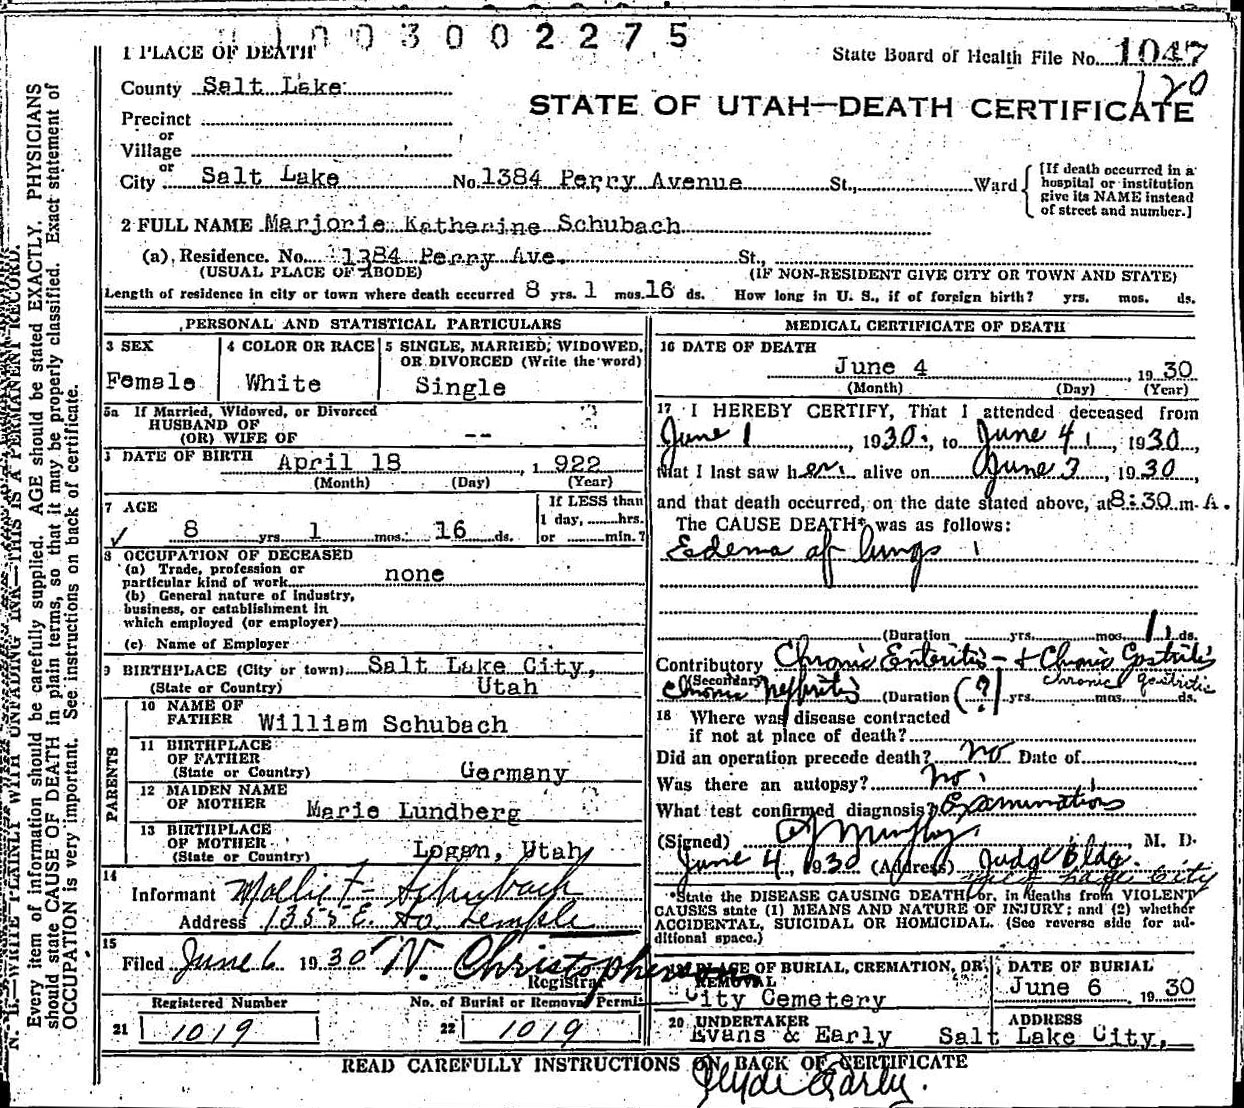 1 0 0 3 0 0 2 2 7 5
1 PLACE OF DEATH
State Board of Health File No. 1047
120
County Salt Lake
STATE OF UTAH—DEATH CERTIFICATE
Precinct
or
Village
or
City Salt Lake No. 1384 Perry Avenue St., Ward
[If death occurred in a
hospital or institution
give its NAME instead
of street and number.]
2 FULL NAME Marjorie Katherine Schubach
(a) Residence. No. 1384 Perry Ave. St.,
(USUAL PLACE OF ABODE) (IF NON-RESIDENT GIVE CITY OR TOWN AND STATE)
Length of residence in city or town where death occurred 8 yrs. 1 mos. 16 ds. How long in U. S., if of foreign birth? yrs. mos. ds.
PERSONAL AND STATISTICAL PARTICULARS
3 SEX
Female
4 COLOR OR RACE
White
5 SINGLE, MARRIED, WIDOWED,
OR DIVORCED (Write the word)
Single
5a If Married, Widowed, or Divorced
HUSBAND OF
(OR) WIFE OF --
DATE OF BIRTH April 18, 1922
(Month) (Day) (Year)
7 AGE
8 yrs 1 mos. 16 ds.
If LESS than
1 day, hrs.
or min.?
8 OCCUPATION OF DECEASED
(a) Trade, profession or
particular kind of work none
(b) General nature of industry,
business, or establishment in
which employed (or employer)
(c) Name of Employer
9 BIRTHPLACE (City or town) Salt Lake City,
(State or Country) Utah
PARENTS
10 NAME OF
FATHER William Schubach
11 BIRTHPLACE
OF FATHER
(State or Country) Germany
12 MAIDEN NAME
OF MOTHER Marie Lundberg
13 BIRTHPLACE
OF MOTHER
(State or Country) Logan, Utah
14
Informant Mollie F. Schubach
Address 1355 E. So. Temple
15
Filed June 6 1930 N. Christopherson
Registrar
Registered Number
21 1019
No. of Burial or Removal Permit
22 1019
MEDICAL CERTIFICATE OF DEATH
16 DATE OF DEATH
June 4, 1930
(Month) (Day) (Year)
17 I HEREBY CERTIFY, That I attended deceased from
June 1, 1930, to June 4, 1930,
that I last saw her alive on June 3, 1930,
and that death occurred, on the date stated above, at 8:30 m. A.
The CAUSE DEATH* was as follows:
Edema of lungs
(Duration yrs. mos. 1 ds.
Contributory Chronic Enteritis - + Chronic Gastritis
(Secondary) chronic gastritis
Chronic Nephritis (Duration (?) yrs. mos. ds.
18 Where was disease contracted
if not at place of death?
Did an operation precede death? no Date of
Was there an autopsy? No.
What test confirmed diagnosis? Examinations
(Signed) Murphy, M. D.
June 4, 1930 (Address) Judge Bldg.
City
*State the DISEASE CAUSING DEATH, or, in deaths from VIOLENT
CAUSES state (1) MEANS AND NATURE OF INJURY; and (2) whether
ACCIDENTAL, SUICIDAL OR HOMICIDAL. (See reverse side for ad-
ditional space.)
PLACE OF BURIAL, CREMATION, OR
REMOVAL
City Cemetery
DATE OF BURIAL
June 6, 1930
20 UNDERTAKER
Evans & Early
ADDRESS
Salt Lake City,
READ CAREFULLY INSTRUCTIONS ON BACK OF CERTIFICATE
Clyde Early.
N. B.—WRITE PLAINLY WITH UNFADING INK—THIS IS A PERMANENT RECORD.
Every item of information should be carefully supplied. AGE should be stated EXACTLY. PHYSICIANS
should state CAUSE OF DEATH in plain terms, so that it may be properly classified. Exact statement of
OCCUPATION is very important. See instructions on back of certificate.